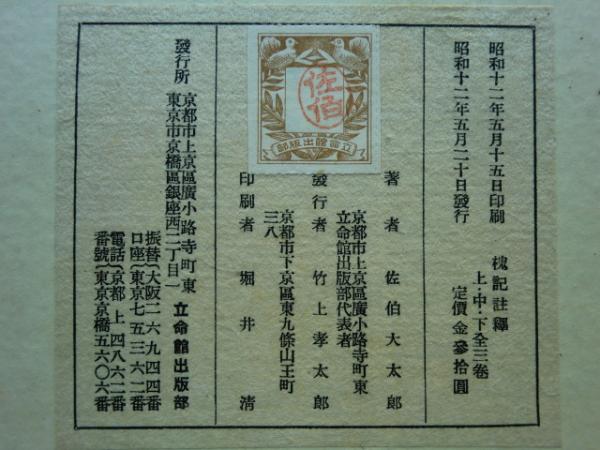 昭和十二年五月十五日印刷
昭和十二年五月二十日發行
槐記註釋
上・中・下全三卷
定價金參拾圓
著者 佐伯大太郎
京都市上京區廣小路寺町東
立命館出版部代表者
發行者 竹上孝太郎
京都市下京區東九條山王町
三八
印刷者 堀井清
佐伯
立命館出版部
發行所
京都市上京區廣小路寺町東
東京市京橋區銀座西二丁目一
立命館出版部
振替(大阪二六九四四番
口座(東京七五三六二番
電話(京都上四八六二番
番號(東京京橋五六〇六番